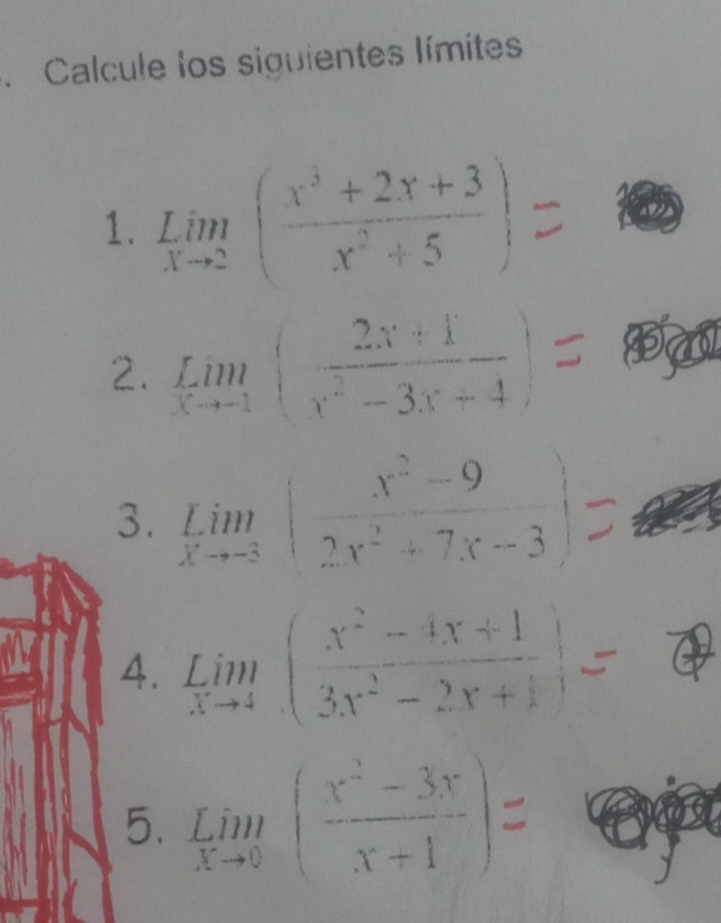 . Calcule los siguientes límites
1. Lim x→2 ( (x³ + 2x + 3) / (x² + 5) ) =
2. Lim x→-1 ( (2x + 1) / (x² - 3x + 4) ) =
3. Lim x→-3 ( (x² - 9) / (2x² + 7x - 3) ) =
4. Lim x→4 ( (x² - 4x + 1) / (3x² - 2x + 1) ) =
5. Lim x→0 ( (x² - 3x) / (x + 1) ) =